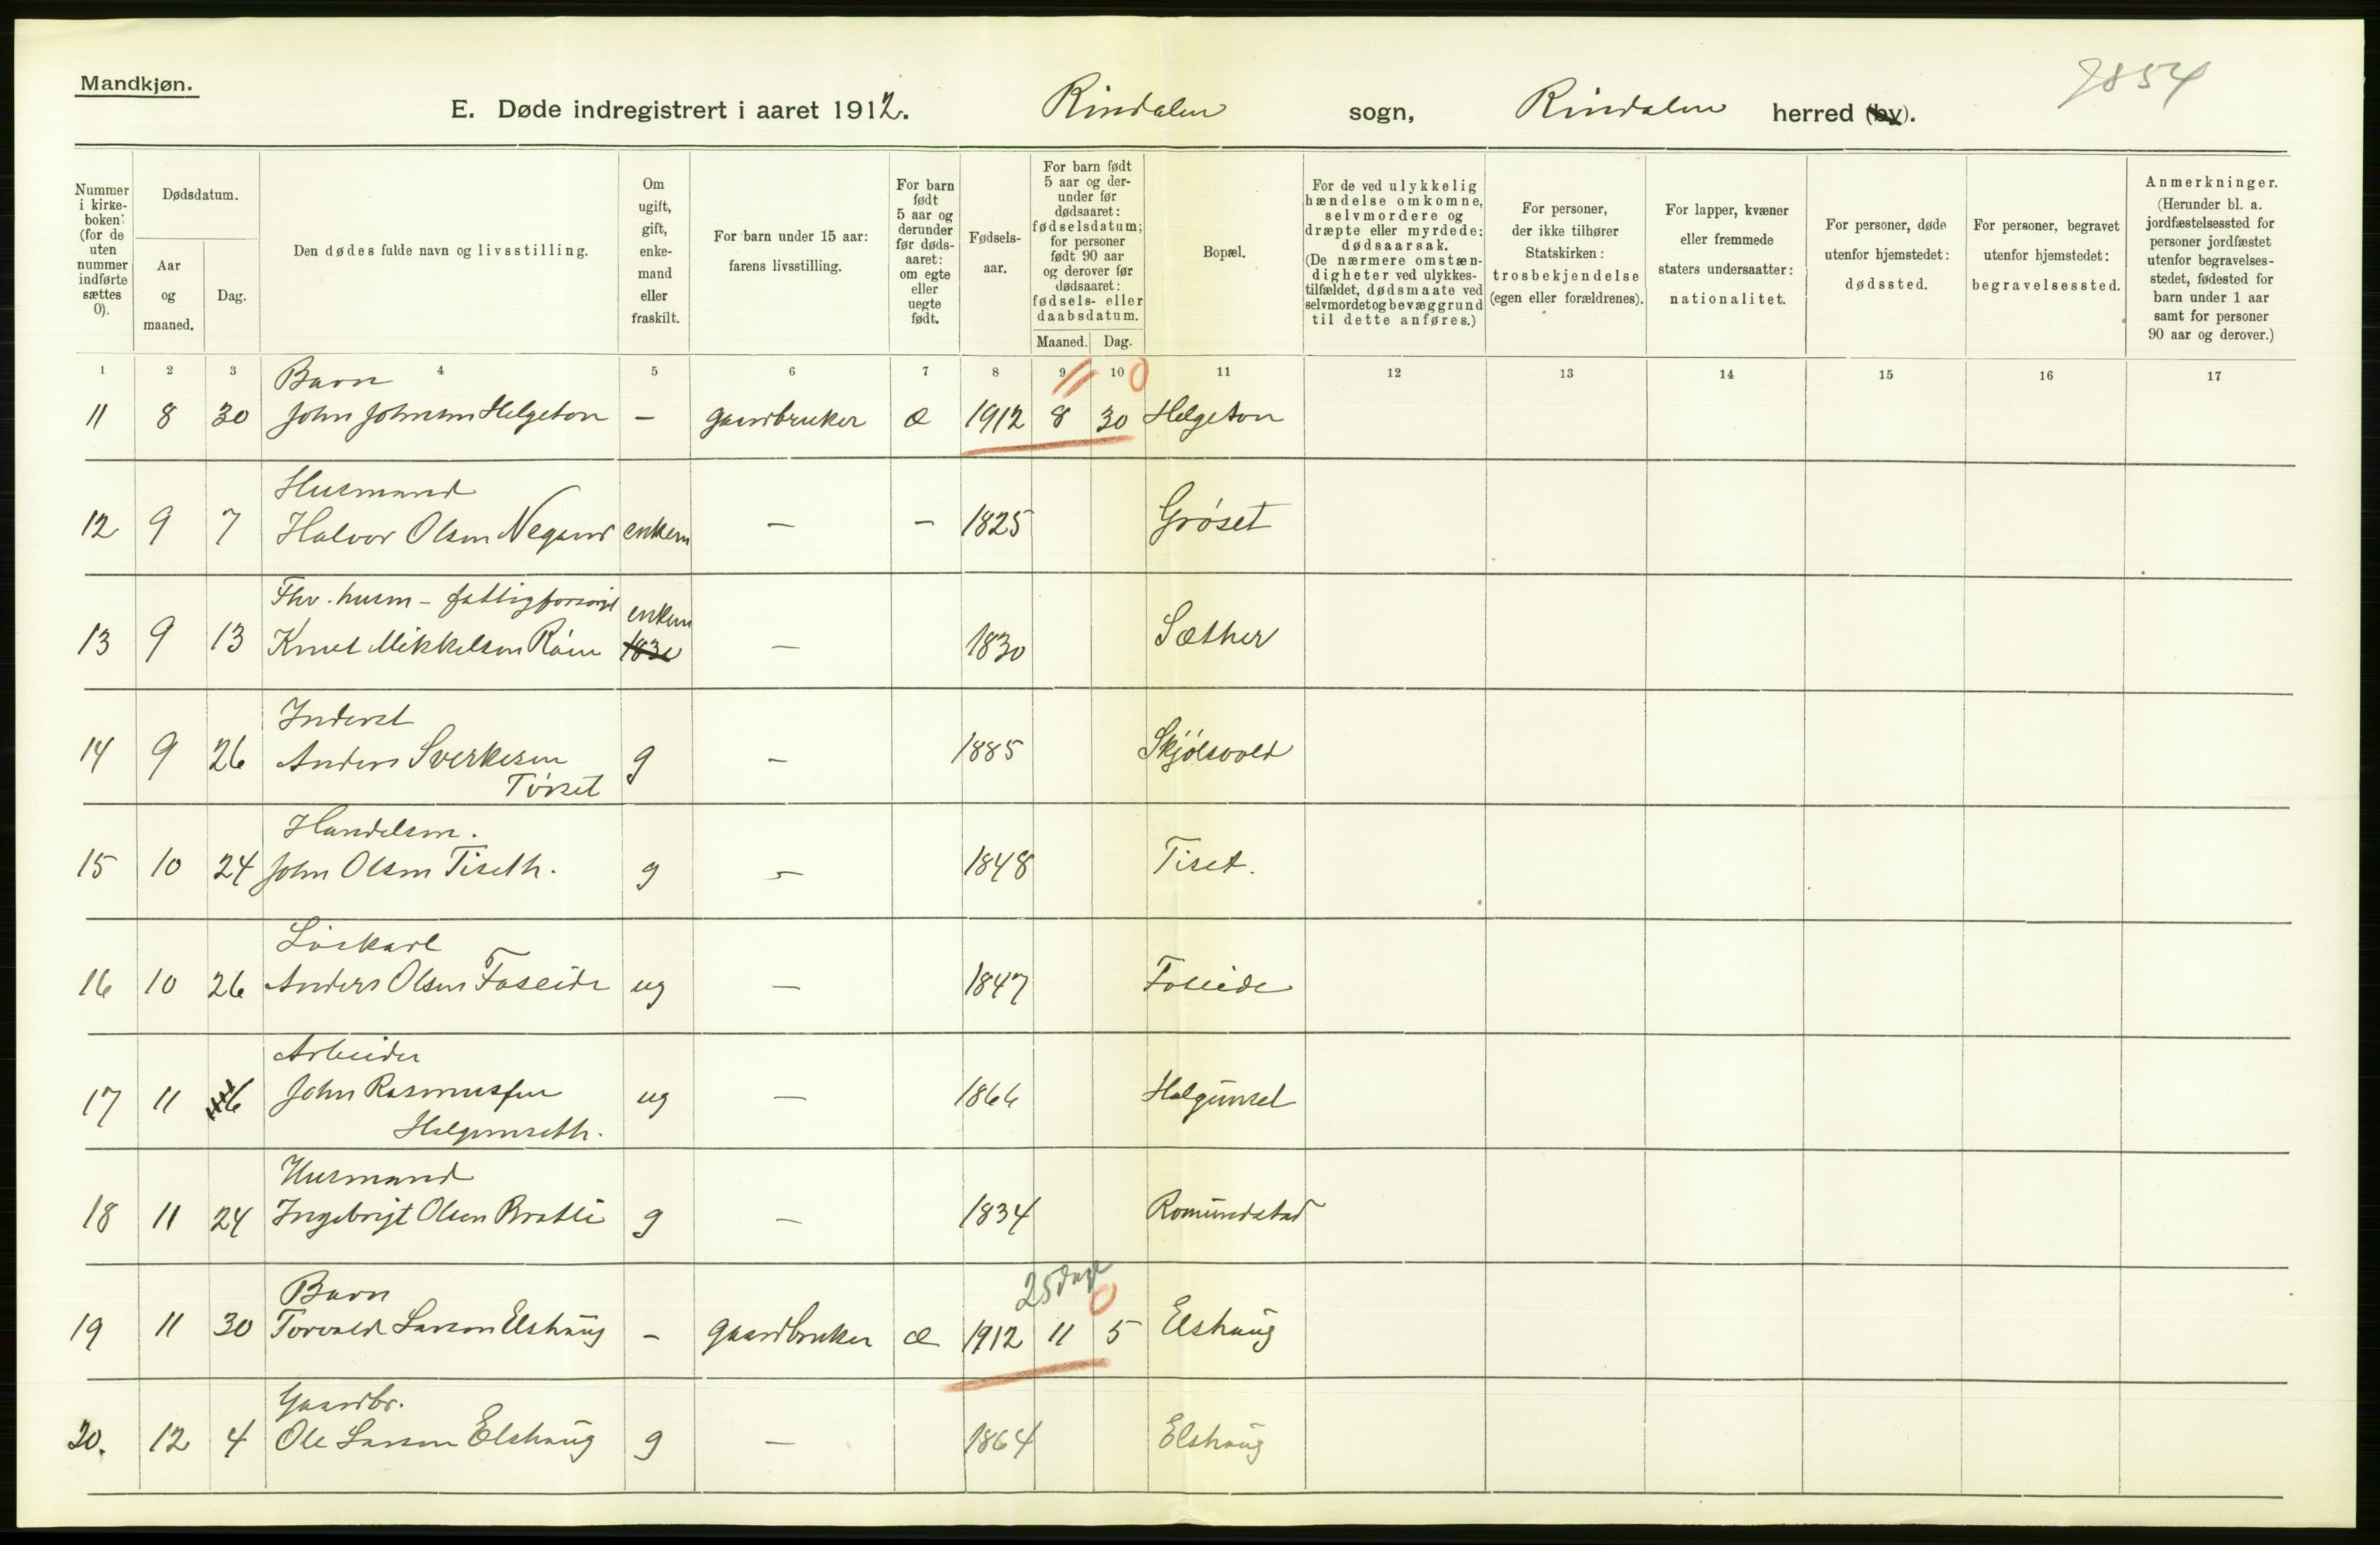 Mandkjøn.
7854
E. Døde indregistrert i aaret 1912. Rindalen sogn, Rindalen herred (by).
Nummer i kirke-boken (for de uten nummer indførte sættes 0).
Dødsdatum.
Aar og maaned.
Dag.
Den dødes fulde navn og livsstilling.
Om ugift, gift, enke-mand eller fraskilt.
For barn under 15 aar: farens livsstilling.
For barn født 5 aar og derunder før døds-aaret: om egte eller uegte født.
Fødsels-aar.
For barn født 5 aar og der-under før dødsaaret: fødselsdatum; for personer født 90 aar og derover før dødsaaret: fødsels- eller daabsdatum.
Maaned. Dag.
Bopæl.
For de ved ulykkelig hændelse omkomne, selvmordere og dræpte eller myrdede: dødsaarsak. (De nærmere omstæn-digheter ved ulykkes-tilfældet, dødsmaate ved selvmordet og bevæggrund til dette anføres.)
For personer, der ikke tilhører Statskirken: trosbekjendelse (egen eller forældrenes).
For lapper, kvæner eller fremmede staters undersaatter: nationalitet.
For personer, døde utenfor hjemstedet: dødssted.
For personer, begravet utenfor hjemstedet: begravelsessted.
Anmerkninger. (Herunder bl. a. jordfæstelsessted for personer jordfæstet utenfor begravelses-stedet, fødested for barn under 1 aar samt for personer 90 aar og derover.)
1 2 3 4 5 6 7 8 9 10 11 12 13 14 15 16 17
11 0
Barn
11 8 30 John Johnsen Helgeton – gaardbruker æ 1912 8 30 Helgeton
Husmand
12 9 7 Halvor Olsen Negard enkem – – 1825 Grøset
Fhv. husm – fattigforsørget enkem
13 9 13 Knut Mikkelsen Røen 1830 – 1830 Sæther
Inderst
14 9 26 Anders Sverkesen g – 1885 Skjølsvold
Tørset
Handelsm.
15 10 24 John Olsen Tiseth. g – 1848 Tiset.
Løskarl
16 10 26 Anders Olsen Foseide ug – 1847 Foseide
Arbeider
17 11 6 John Rasmussen ug – 1866 Halgunset
Halgunseth.
Husmand
18 11 24 Ingebrigt Olsen Bratli g – 1834 Romundstad
25 dage 0
Barn
19 11 30 Torvald Larsen Elshaug – gaardbruker æ 1912 11 5 Elshaug
Gaardbr.
20. 12 4 Ole Larsen Elshaug g – 1864 Elshaug